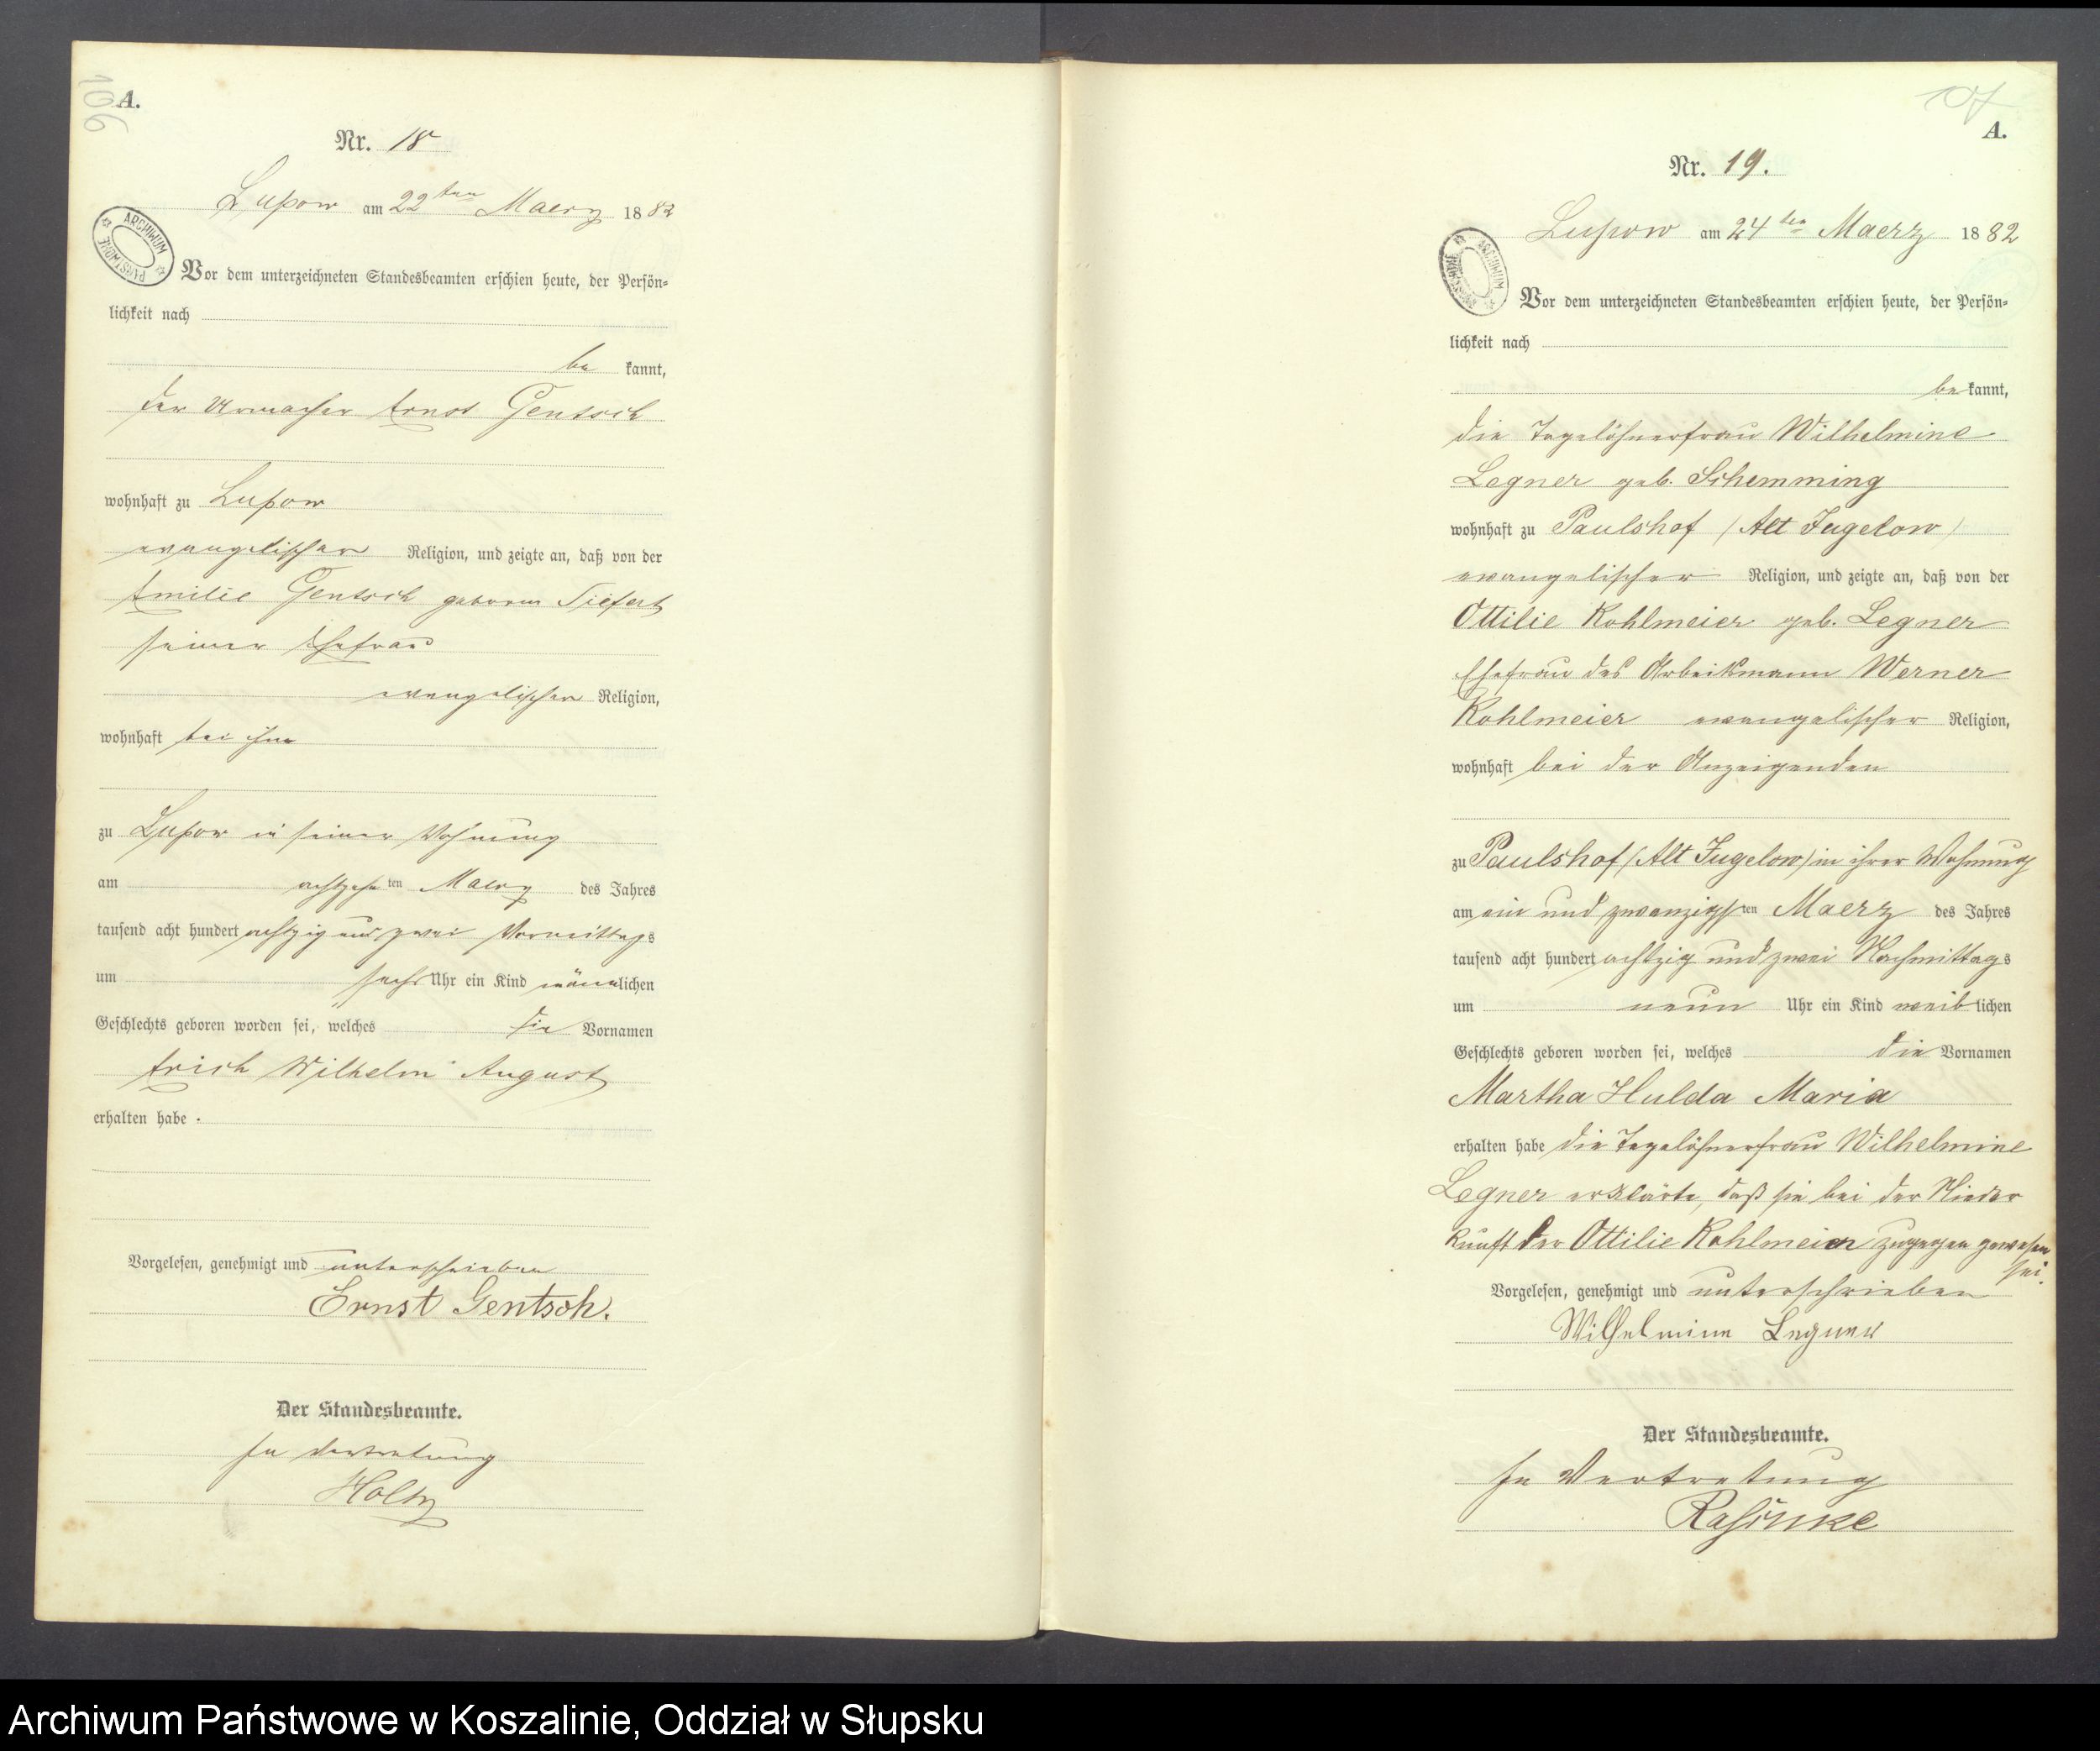 106
A.
Nr. 18
Lupow am 22ten Maerz 1882
ARCHIWUM PAŃSTWOWE
Vor dem unterzeichneten Standesbeamten erschien heute, der Persön-
lichkeit nach
be kannt,
der Urmacher Ernst Gentsch
wohnhaft zu Lupow
evangelischer Religion, und zeigte an, daß von der
Emilie Gentsch geboren Siefert
seiner Ehefrau
evangelischer Religion,
wohnhaft bei ihm
zu Lupow in seiner Wohnung
am achtzehnten Maerz des Jahres
tausend acht hundert achtzig und zwei Vormittags
um sechs Uhr ein Kind männlichen
Geschlechts geboren worden sei, welches die Vornamen
Erich Wilhelm August
erhalten habe.
Vorgelesen, genehmigt und unterschrieben
Ernst Gentsch.
Der Standesbeamte.
In Vertretung
Holtz
107
A.
Nr. 19.
Lupow am 24ten Maerz 1882
ARCHIWUM PAŃSTWOWE
Vor dem unterzeichneten Standesbeamten erschien heute, der Persön-
lichkeit nach
be kannt,
die Tagelöhnerfrau Wilhelmine
Legner geb. Schemming
wohnhaft zu Paulshof (Alt Jugelow)
evangelischer Religion, und zeigte an, daß von der
Ottilie Kohlmeier geb. Legner
Ehefrau des Arbeitsmann Werner
Kohlmeier evangelischer Religion,
wohnhaft bei der Anzeigenden
zu Paulshof (Alt Jugelow) in ihrer Wohnung
am ein und zwanzigsten Maerz des Jahres
tausend acht hundert achtzig und zwei Nachmittags
um neun Uhr ein Kind weiblichen
Geschlechts geboren worden sei, welches die Vornamen
Martha Hulda Maria
erhalten habe die Tagelöhnerfrau Wilhelmine
Legner erklärte, daß sie bei der Nieder
kunft der Ottilie Kohlmeier zugegen gewesen
sei.
Vorgelesen, genehmigt und unterschrieben
Wilhelmine Legner
Der Standesbeamte.
In Vertretung
Archiwum Państwowe w Koszalinie, Oddział w Słupsku